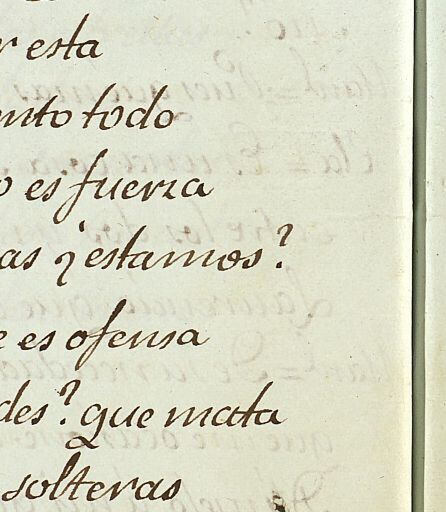 r esta
nto todo
o es fuerza
as ¿estamos?
e es ofensa
des? que mata
solteras